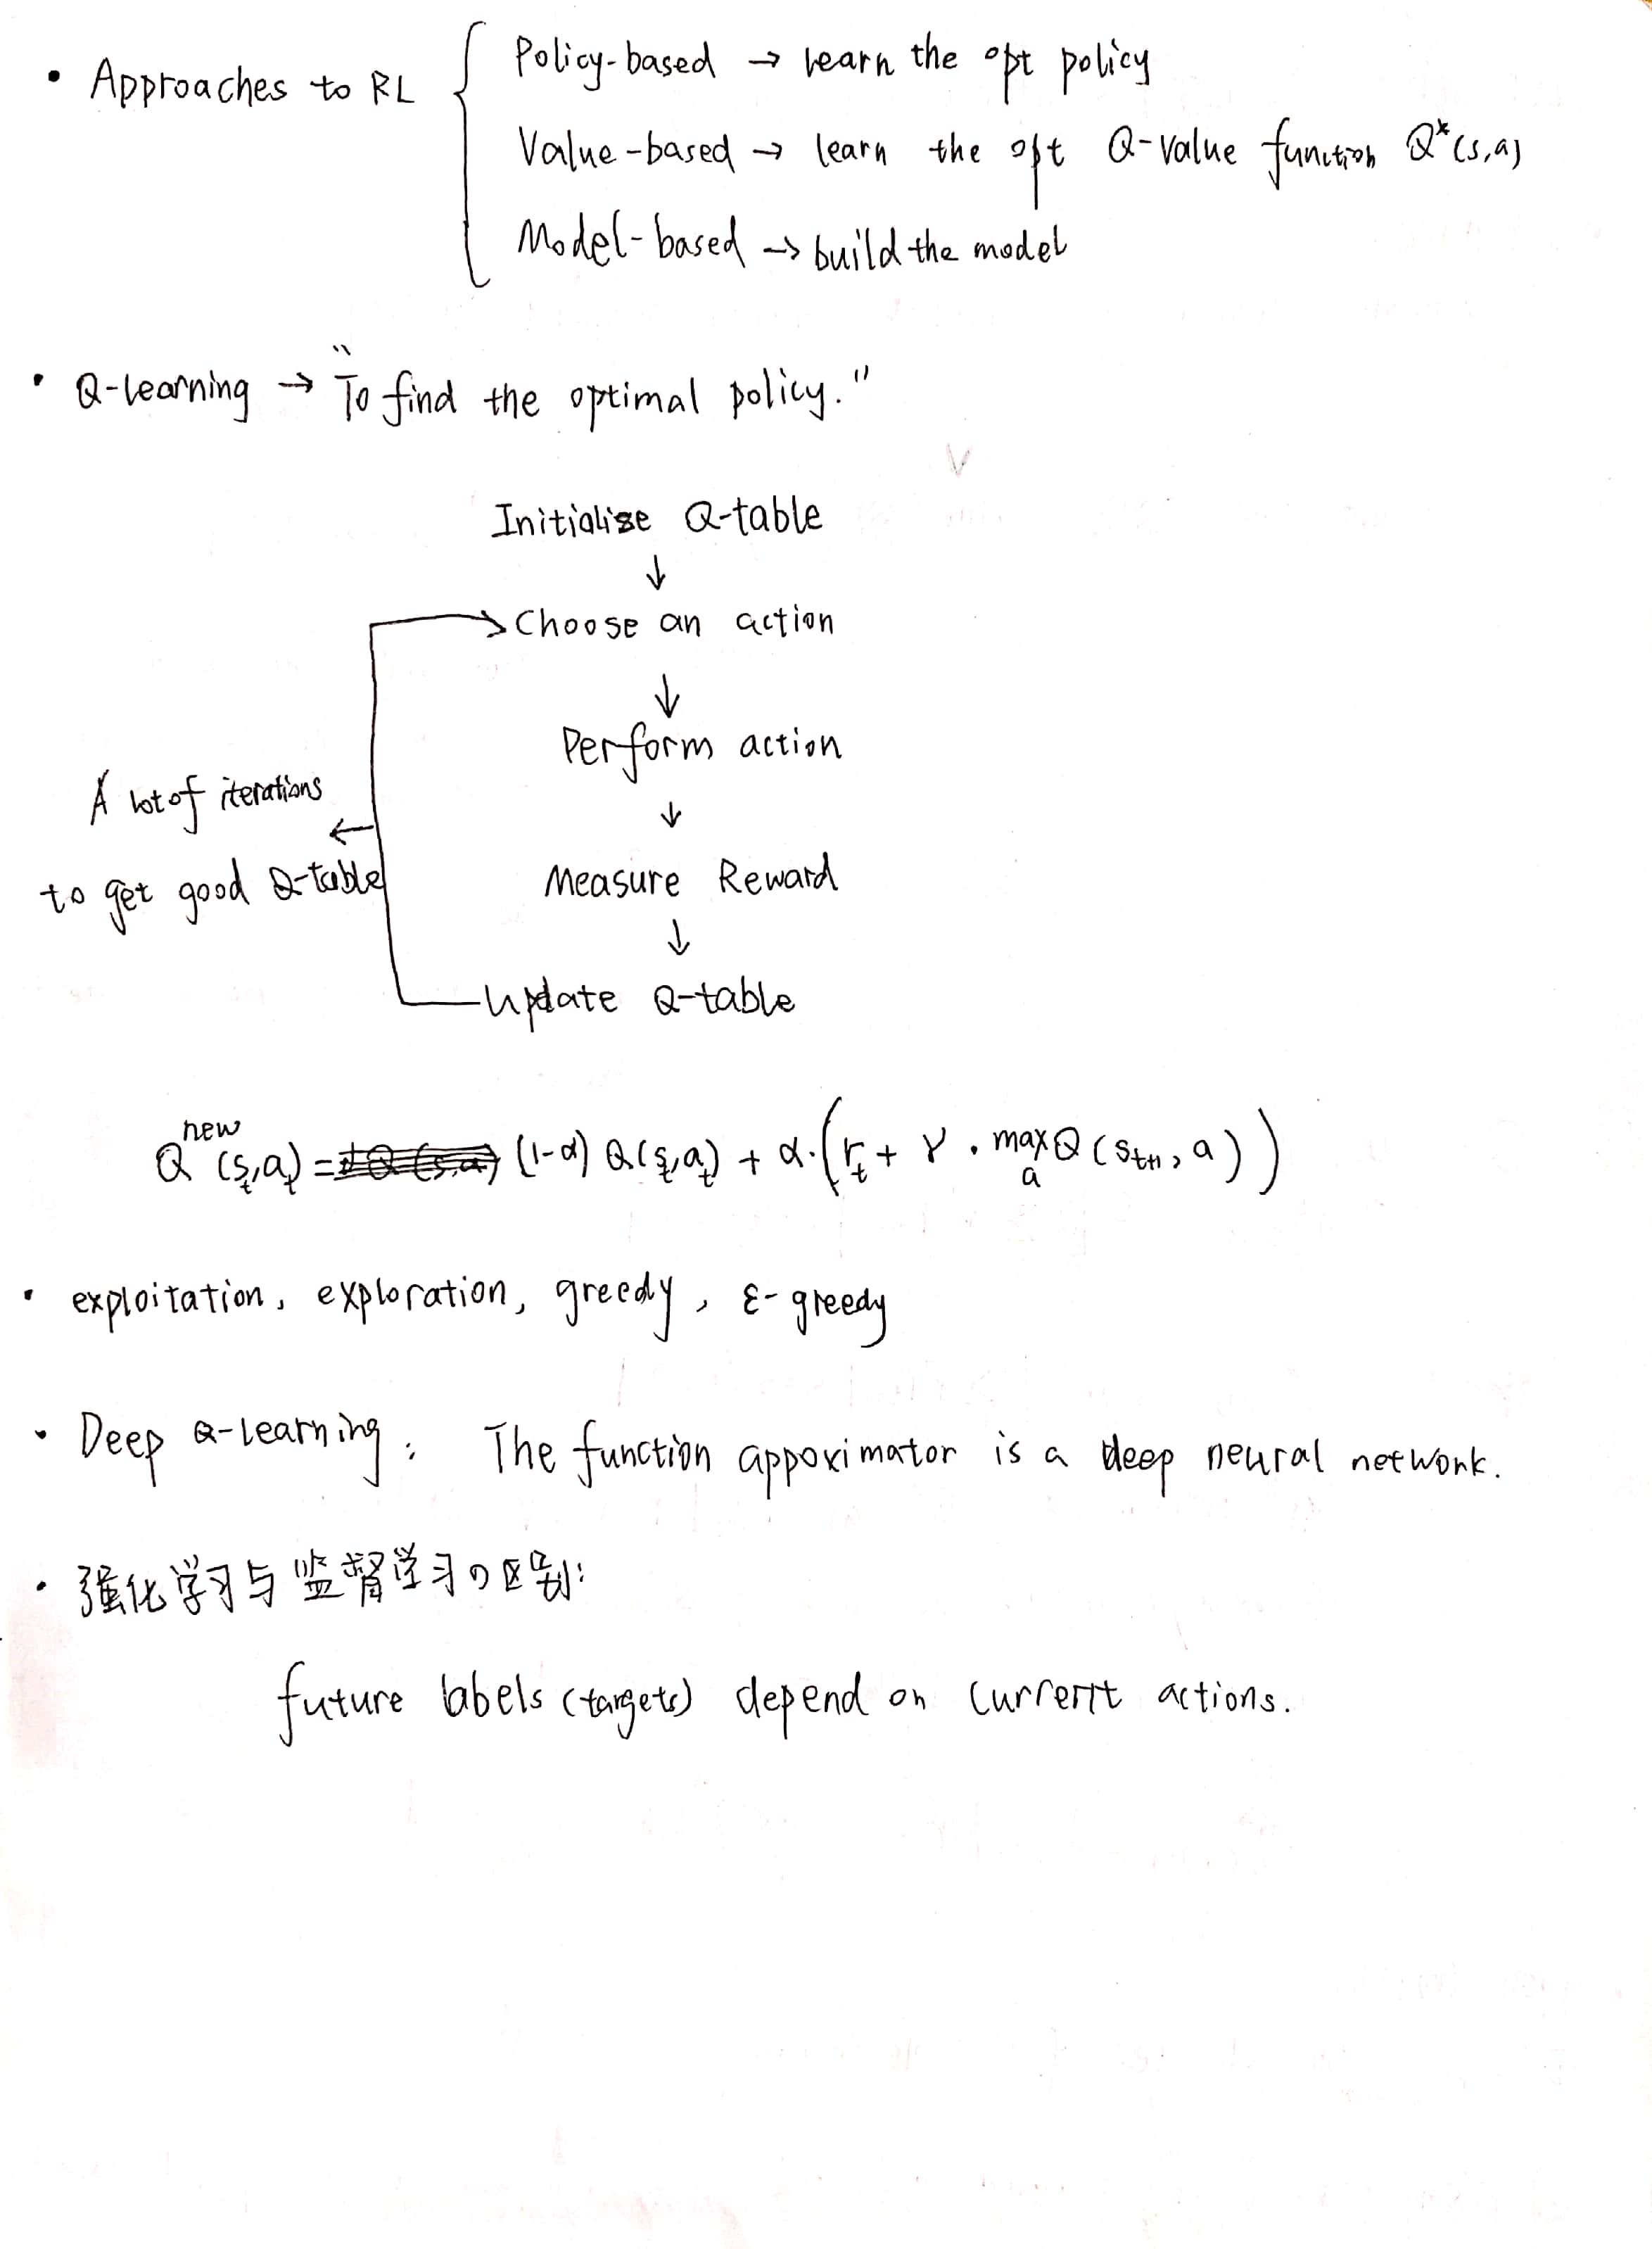 • Approaches to RL
Policy-based → learn the opt policy
Value-based → learn the opt Q-value function Q*(s,a)
Model-based → build the model
• Q-learning → "To find the optimal policy."
Initialise Q-table
↓
Choose an action
↓
Perform action
↓
Measure Reward
↓
Update Q-table
A lot of iterations
← to get good Q-table
Q^new(s_t,a_t) = (1-α) Q(s_t,a_t) + α·(r_t + γ · max_a Q(s_{t+1}, a))
• exploitation, exploration, greedy, ε-greedy
• Deep Q-learning: The function appoximator is a deep neural network.
• 强化学习与监督学习の区别:
future labels (targets) depend on current actions.